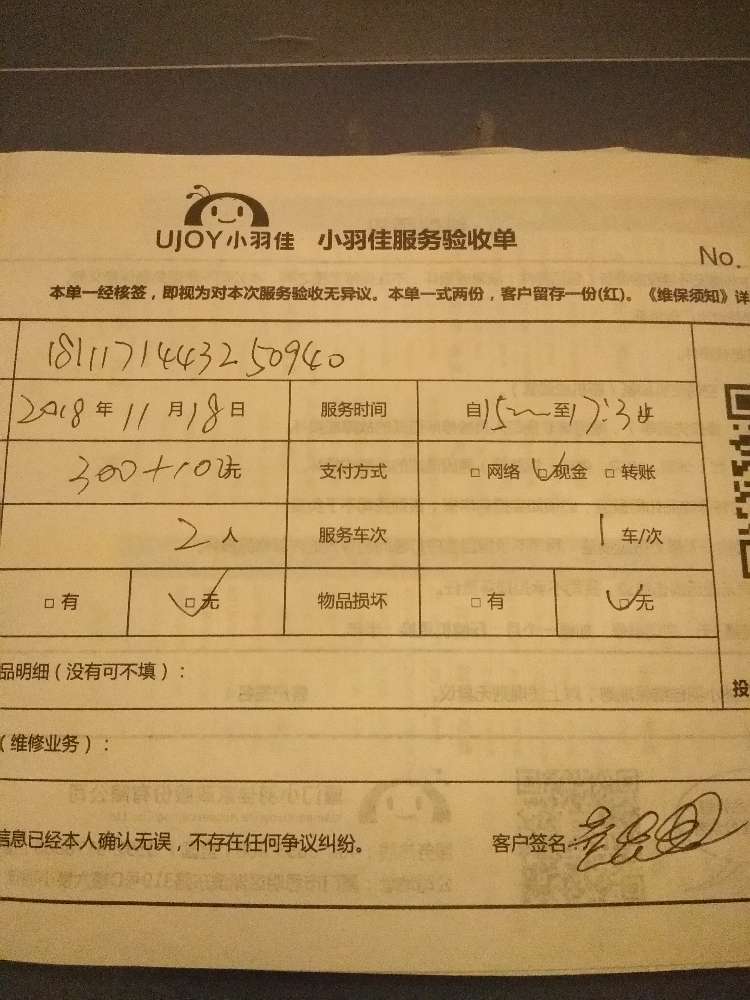 UJOY小羽佳 小羽佳服务验收单
No.
本单一经核签，即视为对本次服务验收无异议。本单一式两份，客户留存一份(红)。《维保须知》详
1811171443250940
2018年11月18日 服务时间 自15 至17:3
300+100元 支付方式 □网络 □现金 □转账
2人 服务车次 1车/次
□有 □无 物品损坏 □有 □无
品明细（没有可不填）：
投
（维修业务）：
信息已经本人确认无误，不存在任何争议纠纷。 客户签名: